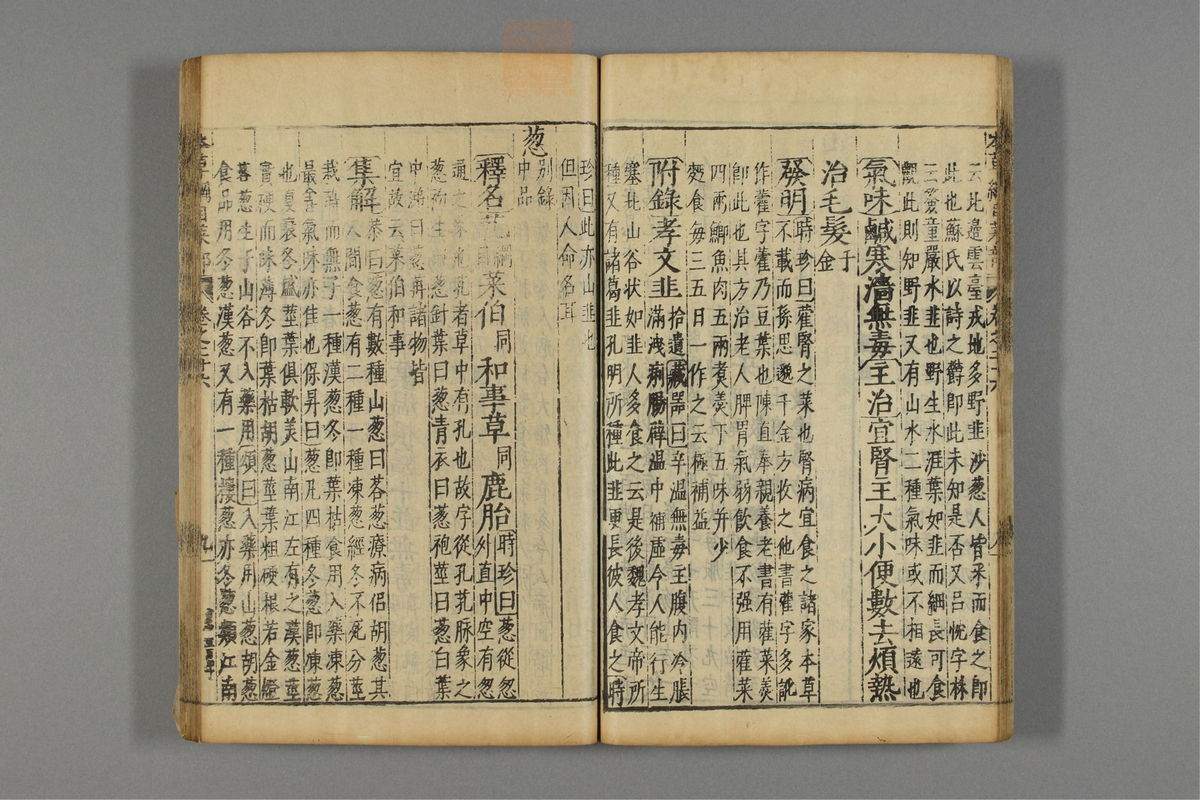 云北邊雲臺戎地多野韭沙葱人皆采而食之即
此也蘇氏以詩之爵即此未知是否又吕忱字林
云䪥童嚴水韭也野生水涯葉如韭而細長可食
觀此則知野韭又有山水二種氣味或不相遠也
氣味鹹寒濇無毒主治宜腎主大小便數去煩熱
治毛髮千金
發明時珍曰藿腎之菜也腎病宜食之諸家本草
不載而孫思邈千金方收之他書藿字多訛
作藿字藿乃豆葉也陳直奉親養老書有藿菜羹
即此也其方治老人脾胃氣弱飲食不强用藿菜
四兩鯽魚肉五兩煮羹下五味并少
麪食每三五日一作之云極補益
附錄孝文韭拾遺藏器曰辛温無毒主腹内冷脹
滿洩痢腸澼温中補虛令人能行生
塞北山谷狀如韭人多食之云是後魏孝文帝所
種又有諸葛韭孔明所種此韭更長彼人食之時
珍曰此亦山韭也
但因人命名耳
葱别錄中品
釋名芤綱目菜伯同和事草同鹿胎時珍曰葱從悤
外直中空有悤
通之象也芤者草中有孔也故字從孔芤脉象之
葱初生曰葱針葉曰葱青衣曰葱袍莖曰葱白葉
中涕曰葱苒諸物皆
宜故云菜伯和事
集解恭曰葱有數種山葱曰茖葱療病侣胡葱其
人間食葱有二種一種凍葱經冬不死分莖
栽蒔而無子一種漢葱冬即葉枯食用入藥凍葱
最善氣味亦佳也保昇曰葱凡四種冬葱即凍葱
也夏衰冬盛莖葉俱軟美山南江左有之漢葱莖
實硬而味薄冬即葉枯胡葱莖葉粗硬根若金燈
茖葱生于山谷不入藥用頌曰入藥用山葱胡葱
食品用冬葱漢葱又有一種樓葱亦冬葱類江南